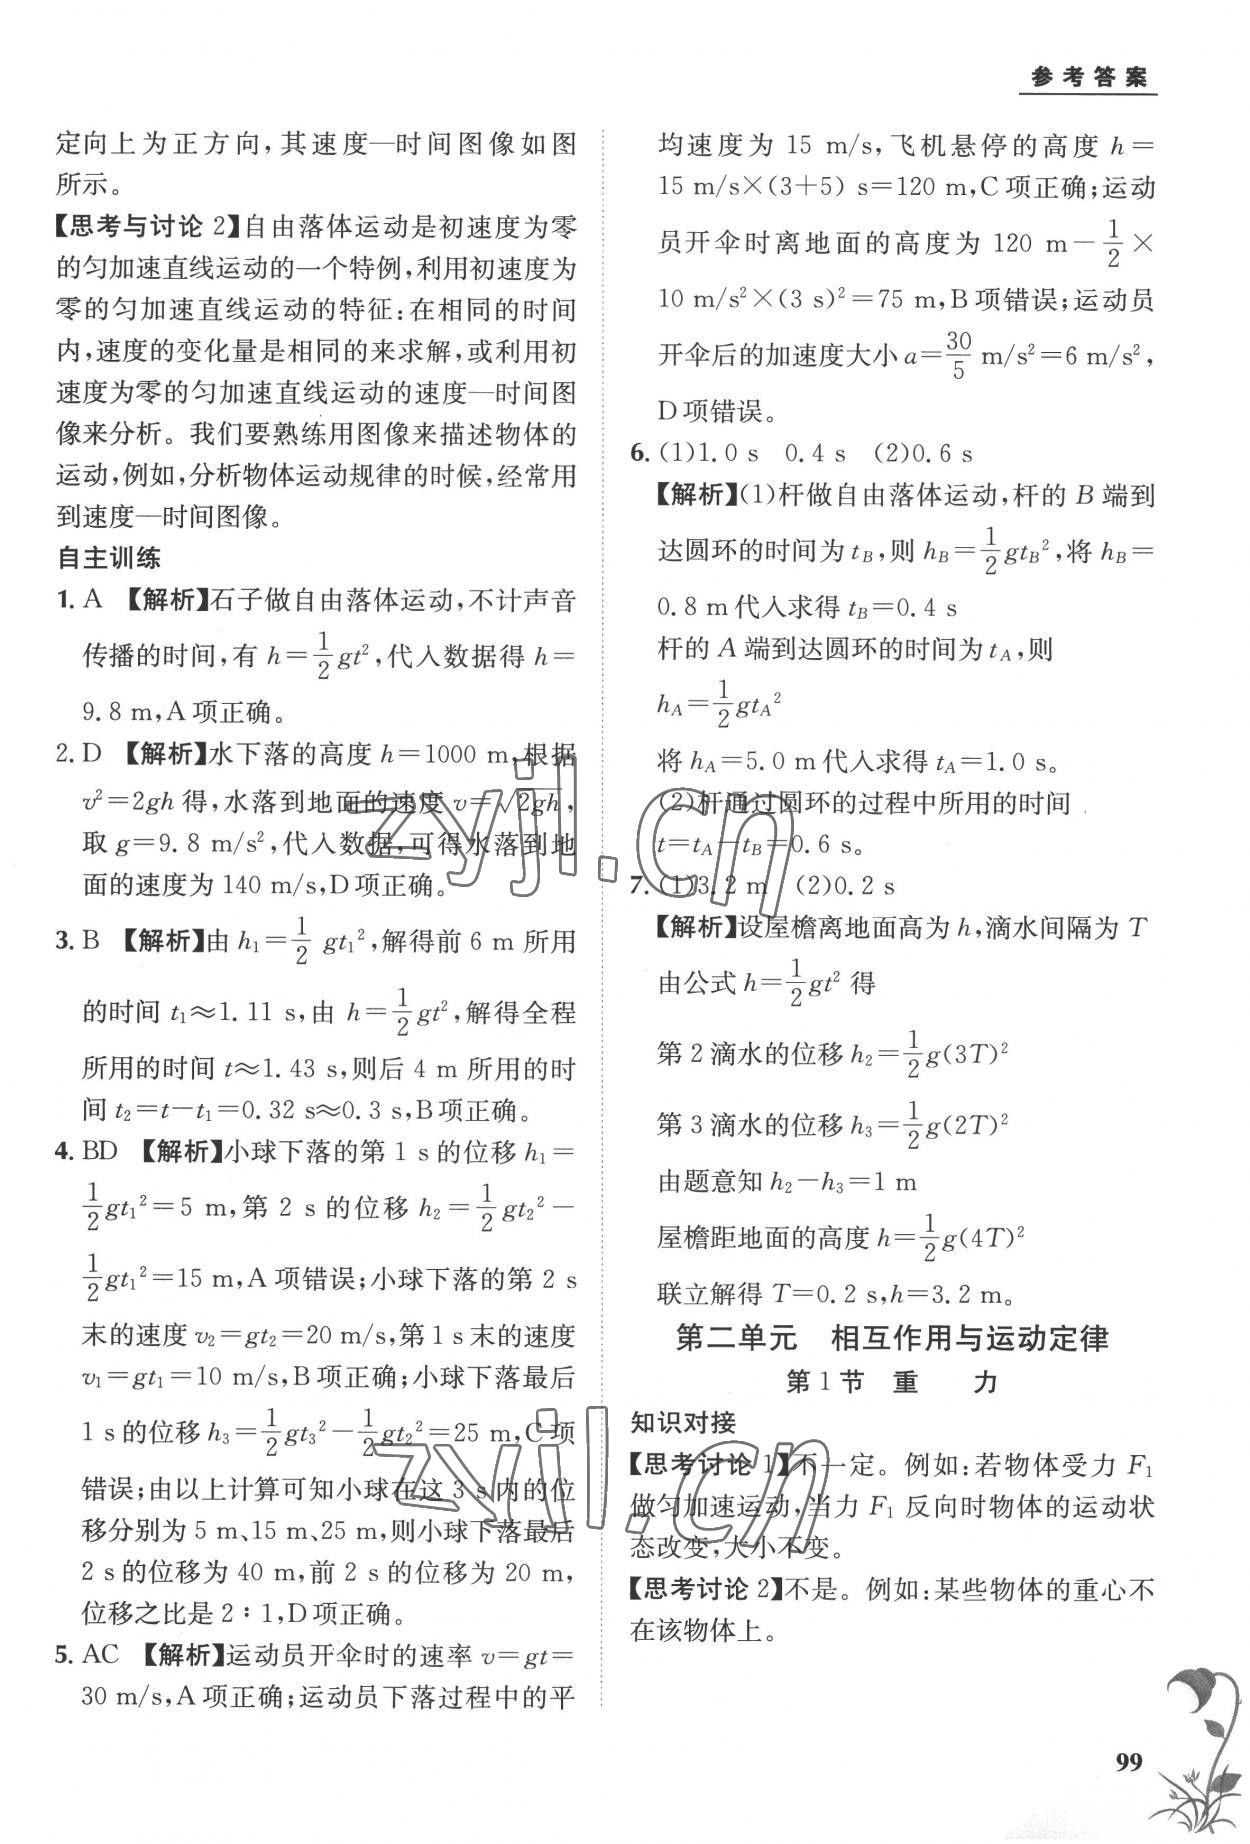 参考答案
定向上为正方向，其速度—时间图像如图
所示。
【思考与讨论 2】自由落体运动是初速度为零
的匀加速直线运动的一个特例，利用初速度为
零的匀加速直线运动的特征：在相同的时间
内，速度的变化量是相同的来求解，或利用初
速度为零的匀加速直线运动的速度—时间图
像来分析。我们要熟练用图像来描述物体的
运动，例如，分析物体运动规律的时候，经常用
到速度—时间图像。
自主训练
1. A 【解析】石子做自由落体运动，不计声音
传播的时间，有 h＝1/2 gt²，代入数据得 h＝
9.8 m，A 项正确。
2. D 【解析】水下落的高度 h＝1000 m，根据
v²＝2gh 得，水落到地面的速度 v＝√2gh，
取 g＝9.8 m/s²，代入数据，可得水落到地
面的速度为 140 m/s，D项正确。
3. B 【解析】由 h₁＝1/2 gt₁²，解得前 6 m 所用
的时间 t₁≈1.11 s，由 h＝1/2 gt²，解得全程
所用的时间 t≈1.43 s，则后 4 m 所用的时
间 t₂＝t－t₁＝0.32 s≈0.3 s，B项正确。
4. BD 【解析】小球下落的第 1 s 的位移 h₁＝
1/2 gt₁²＝5 m，第 2 s 的位移 h₂＝1/2 gt₂²－
1/2 gt₁²＝15 m，A 项错误；小球下落的第 2 s
末的速度 v₂＝gt₂＝20 m/s，第 1 s 末的速度
v₁＝gt₁＝10 m/s，B项正确；小球下落最后
1 s 的位移 h₃＝1/2 gt₃²－1/2 gt₂²＝25 m，C 项
错误；由以上计算可知小球在这 3 s 内的位
移分别为 5 m、15 m、25 m，则小球下落最后
2 s 的位移为 40 m，前 2 s 的位移为 20 m，
位移之比是 2∶1，D项正确。
5. AC 【解析】运动员开伞时的速率 v＝gt＝
30 m/s，A 项正确；运动员下落过程中的平
均速度为 15 m/s，飞机悬停的高度 h＝
15 m/s×(3+5) s＝120 m，C 项正确；运动
员开伞时离地面的高度为 120 m－1/2×
10 m/s²×(3 s)²＝75 m，B 项错误；运动员
开伞后的加速度大小 a＝30/5 m/s²＝6 m/s²，
D项错误。
6. (1)1.0 s 0.4 s (2)0.6 s
【解析】(1)杆做自由落体运动，杆的 B 端到
达圆环的时间为 tB，则 hB＝1/2 gtB²，将 hB＝
0.8 m代入求得 tB＝0.4 s
杆的 A 端到达圆环的时间为 tA，则
hA＝1/2 gtA²
将 hA＝5.0 m代入求得 tA＝1.0 s。
(2)杆通过圆环的过程中所用的时间
t＝tA－tB＝0.6 s。
7. (1)3.2 m (2)0.2 s
【解析】设屋檐离地面高为 h，滴水间隔为 T
由公式 h＝1/2 gt² 得
第 2 滴水的位移 h₂＝1/2 g(3T)²
第 3 滴水的位移 h₃＝1/2 g(2T)²
由题意知 h₂－h₃＝1 m
屋檐距地面的高度 h＝1/2 g(4T)²
联立解得 T＝0.2 s，h＝3.2 m。
第二单元 相互作用与运动定律
第 1 节 重 力
知识对接
【思考讨论 1】不一定。例如：若物体受力 F₁
做匀加速运动，当力 F₁ 反向时物体的运动状
态改变，大小不变。
【思考讨论 2】不是。例如：某些物体的重心不
在该物体上。
99
zyjl.cn
zyjl.cn